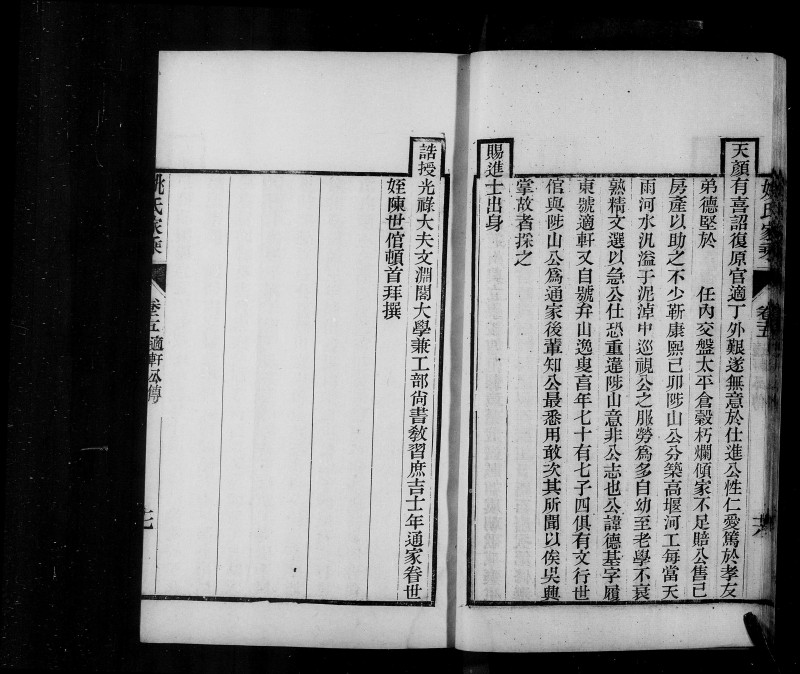 天顏有喜詔復原官適丁外艱遂無意於仕進公性仁愛篤於孝友
弟德堅於　　任內交盤太平倉穀朽爛傾家不足賠公售己
房產以助之不少靳康熙己卯陟山公分築高堰河工每當天
雨河水汎溢于泥淖中巡視公之服勞為多自幼至老學不衰
熟精文選以急公仕恐重違陟山意非公志也公諱德基字履
東號適軒又自號弁山逸叟言年七十有七子四俱有文行世
倌與陟山公為通家後輩知公最悉用敢次其所聞以俟吳興
掌故者採之
賜進士出身
誥授光祿大夫文淵閣大學兼工部尚書敎習庶吉士年通家眷世
姪陳世倌頓首拜撰
姚氏家乘
卷五
適軒公傳
十七
姚氏家乘
卷五
十六